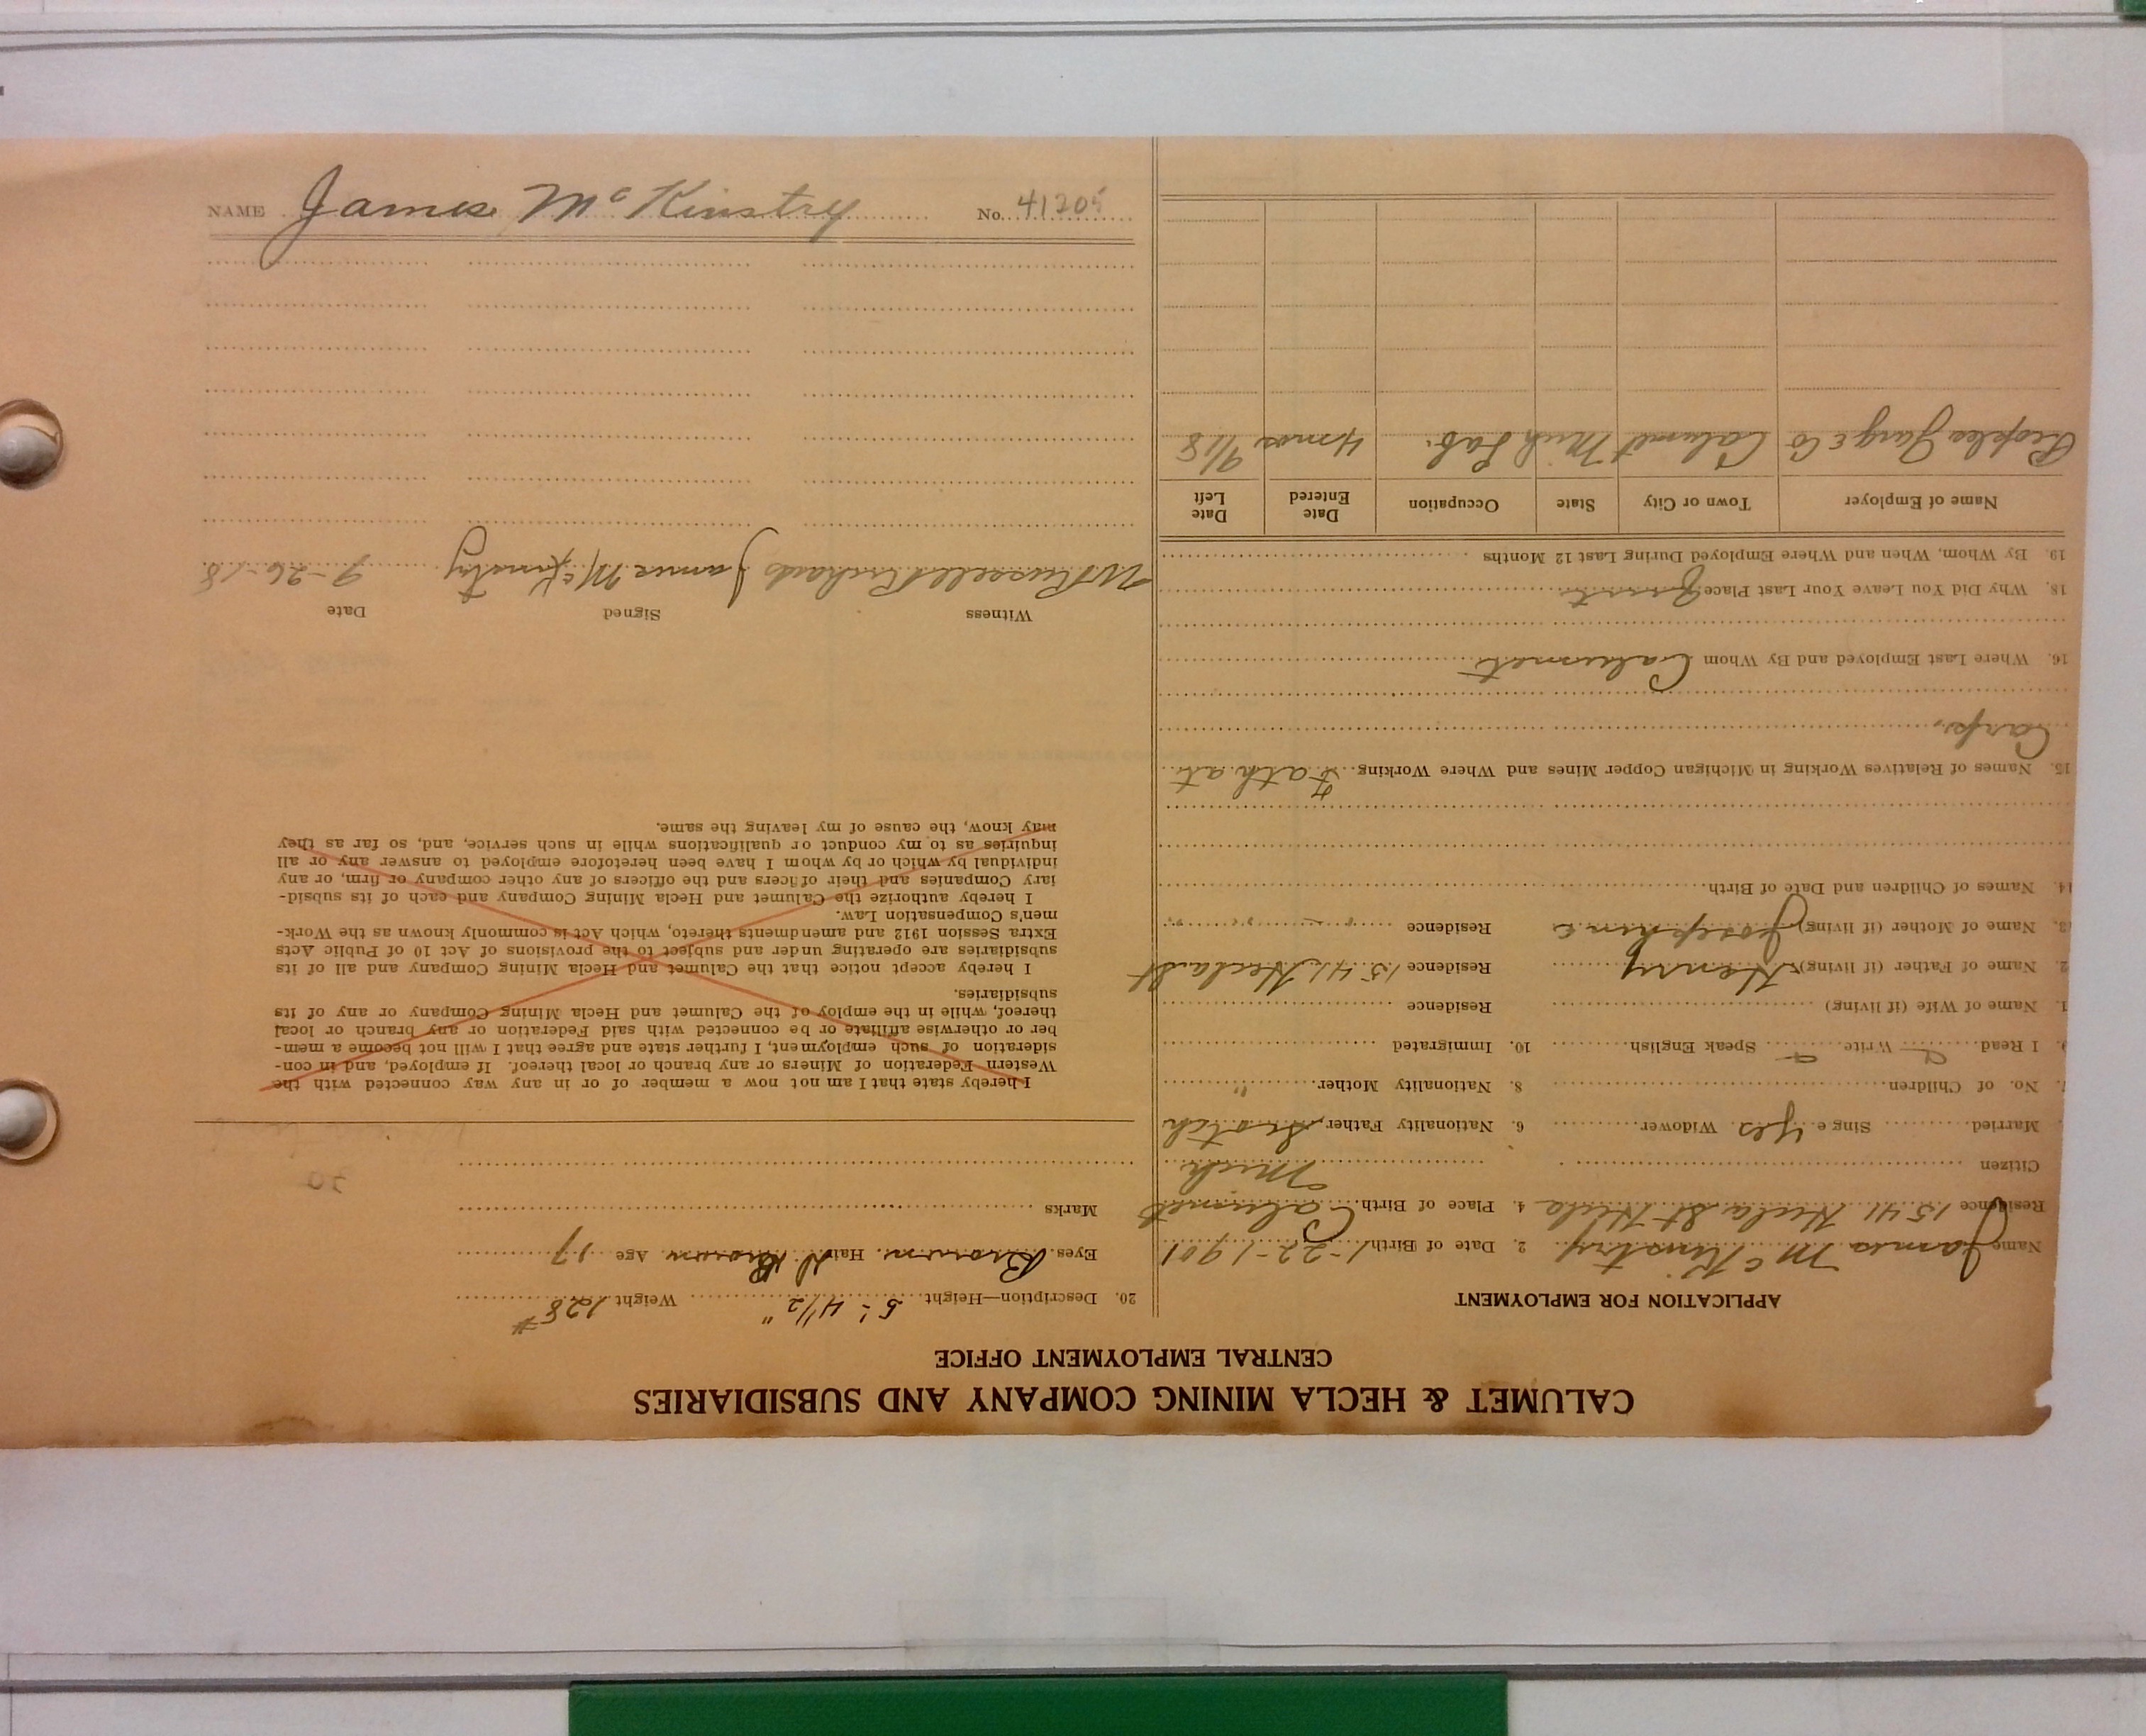 NAME James McKinstry No. 41205
CALUMET & HECLA MINING COMPANY AND SUBSIDIARIES
CENTRAL EMPLOYMENT OFFICE
APPLICATION FOR EMPLOYMENT
Name James McKinstry 2. Date of Birth 1-22-1901
Residence 1541 Hecla St Hecla 4. Place of Birth Calumet
Citizen Mich
Married Sing e yes Widower 6. Nationality Father, Scotch
7. No. of Children 8. Nationality Mother "
9. I Read Write Speak English 10. Immigrated
1. Name of Wife (if living) Residence
2. Name of Father (if living) Henry Residence 1541 Hecla St
13. Name of Mother (if living) Josephine Residence " " "
14. Names of Children and Date of Birth
15. Names of Relatives Working in Michigan Copper Mines and Where Working Fath at
Carp.
16. Where Last Employed and By Whom Calumet
18. Why Did You Leave Your Last Place
19. By Whom, When and Where Employed During Last 12 Months
Name of Employer Town or City State Occupation Date Entered Date Left
Peoples & Co Calumet Mich Lab. 4 mos 9/18
20. Description—Height 5'-4 1/2" Weight 128 #
Eyes Brown Hair D Brown Age 17
Marks
30
I hereby state that I am not now a member of or in any way connected with the
Western Federation of Miners or any branch or local thereof. If employed, and in con-
sideration of such employment, I further state and agree that I will not become a mem-
ber or otherwise affiliate or be connected with said Federation or any branch or local
thereof, while in the employ of the Calumet and Hecla Mining Company or any of its
subsidiaries.
I hereby accept notice that the Calumet and Hecla Mining Company and all of its
subsidiaries are operating under and subject to the provisions of Act 10 of Public Acts
Extra Session 1912 and amendments thereto, which Act is commonly known as the Work-
men's Compensation Law.
I hereby authorize the Calumet and Hecla Mining Company and each of its subsid-
iary Companies and their officers and the officers of any other company or firm, or any
individual by which or by whom I have been heretofore employed to answer any or all
inquiries as to my conduct or qualifications while in such service, and, so far as they
may know, the cause of my leaving the same.
Witness Signed Date
W Russell Richards James McKinstry 9-26-18